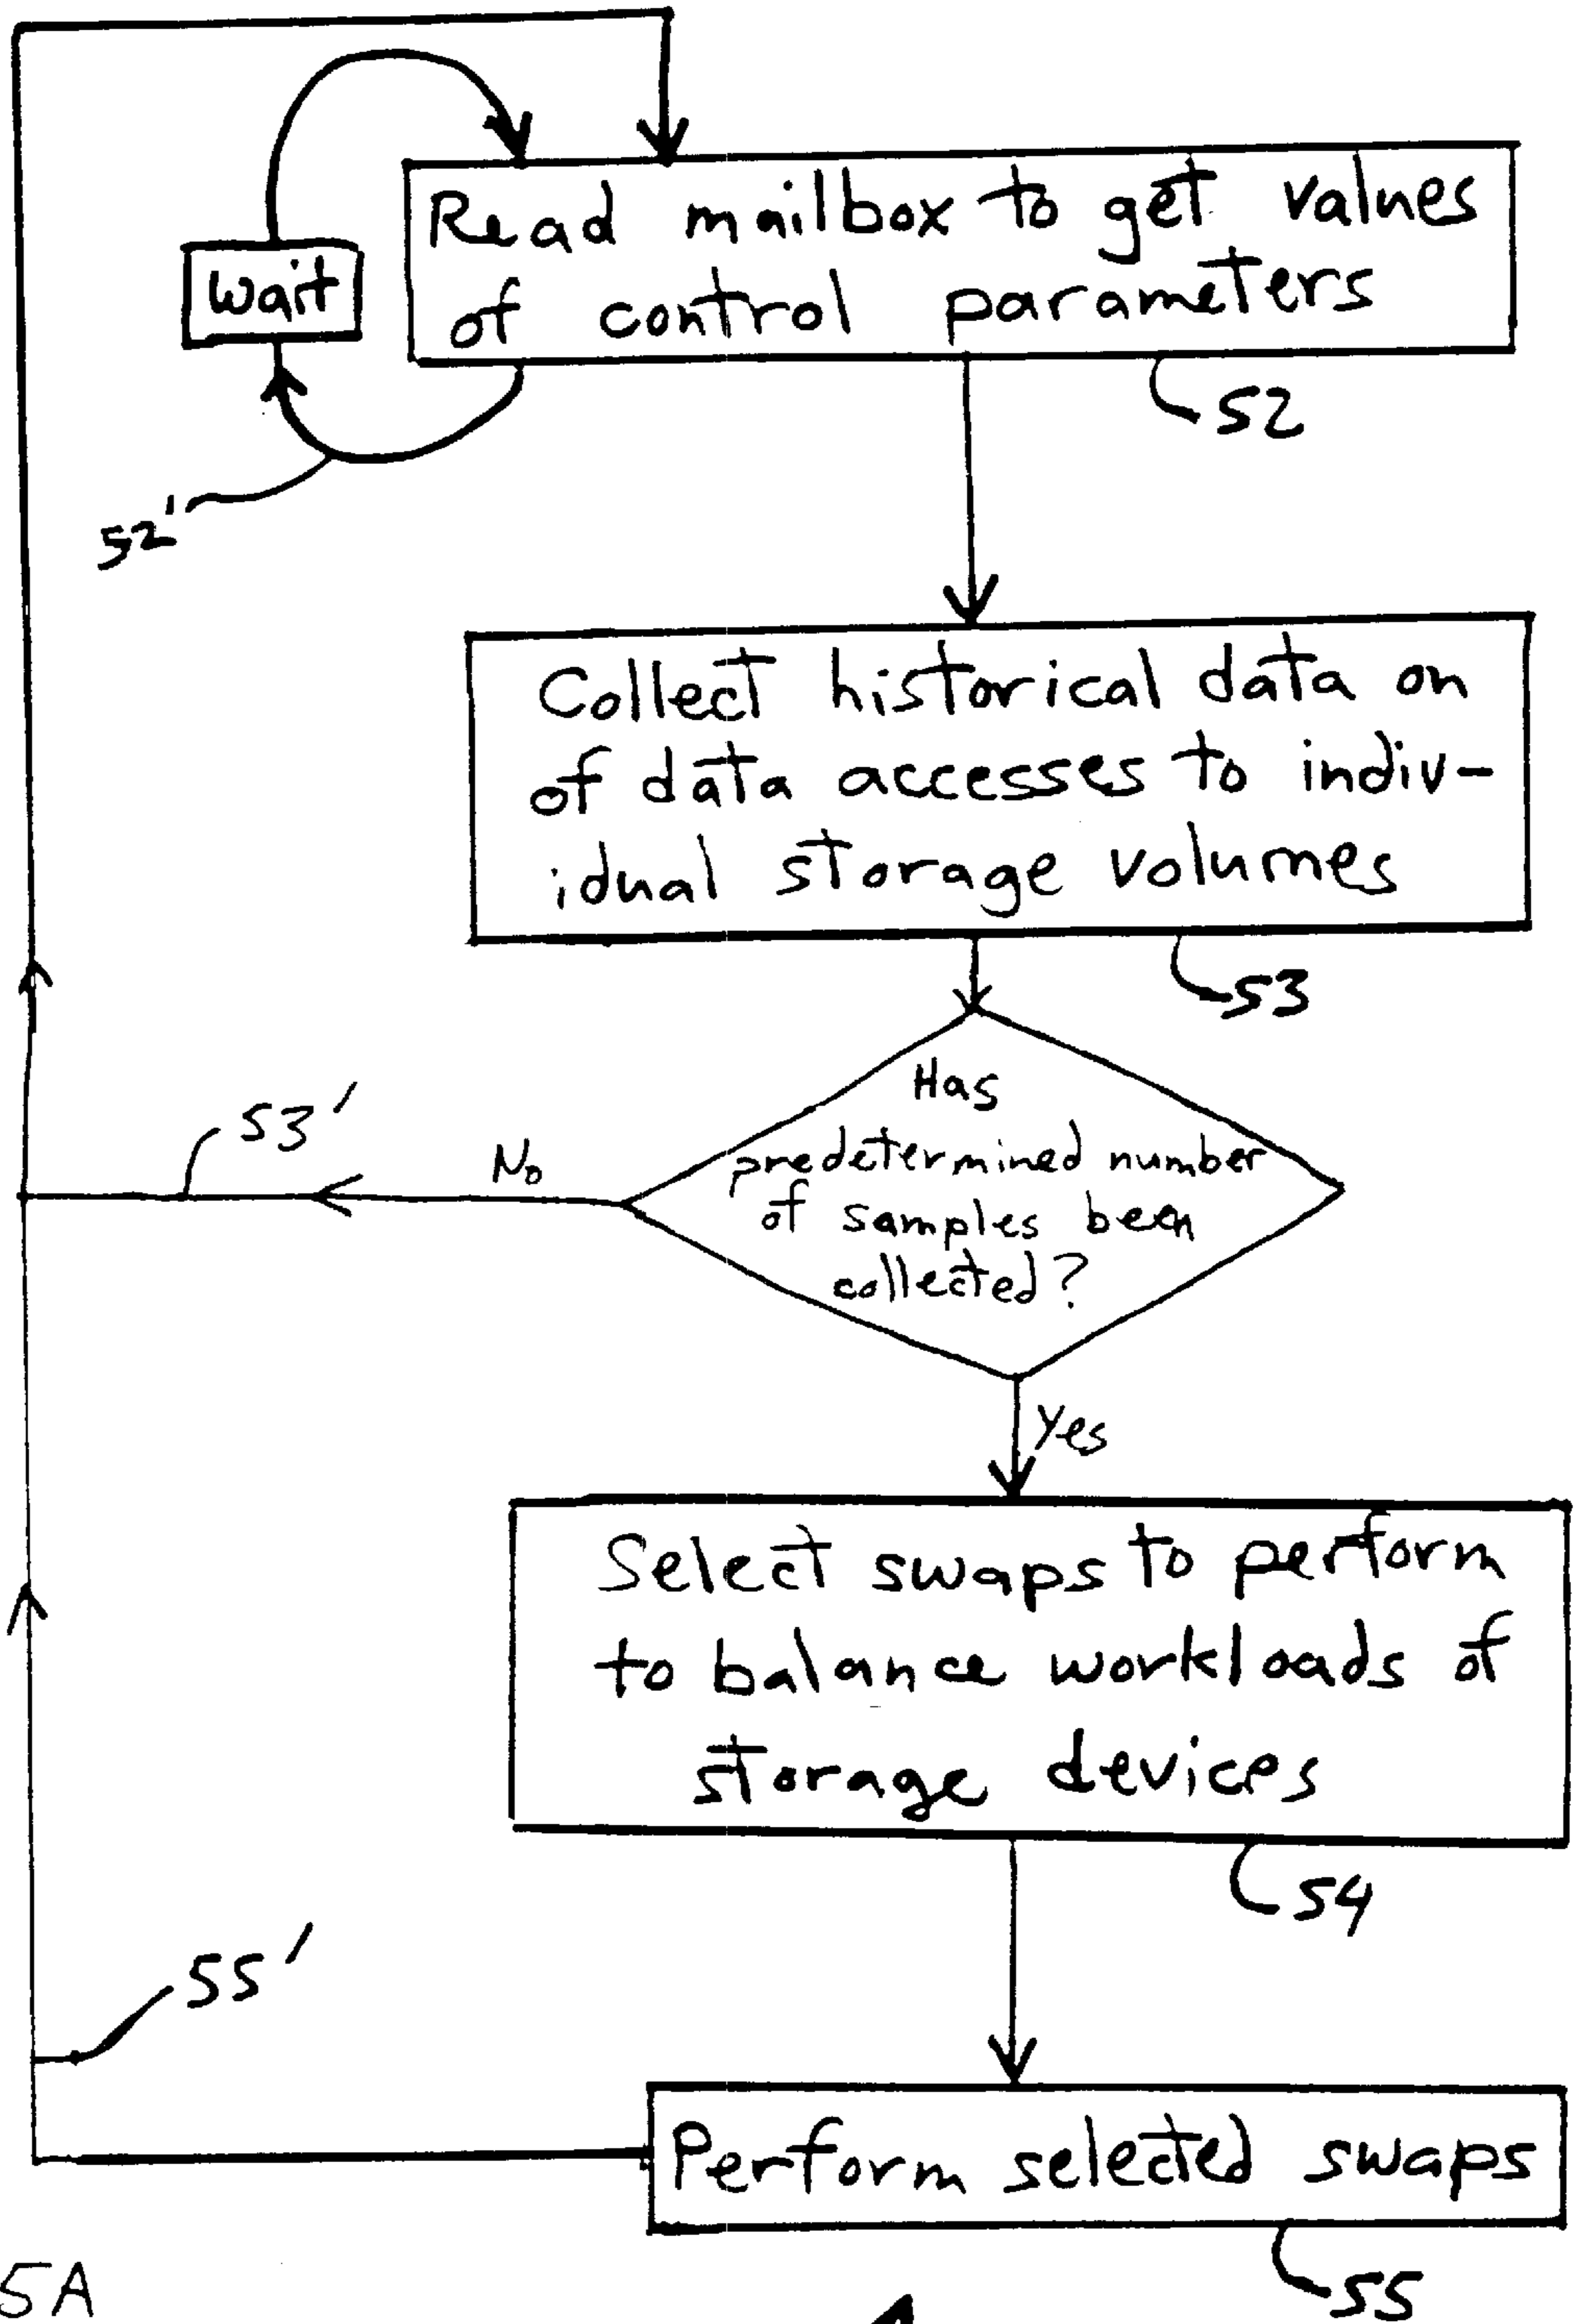 Read mailbox to get values
of control parameters
wait
52
52'
Collect historical data on
of data accesses to indiv-
idual storage volumes
53
Has
predetermined number
of samples been
collected?
No
53'
Yes
Select swaps to perform
to balance workloads of
storage devices
54
55'
Perform selected swaps
55
5A